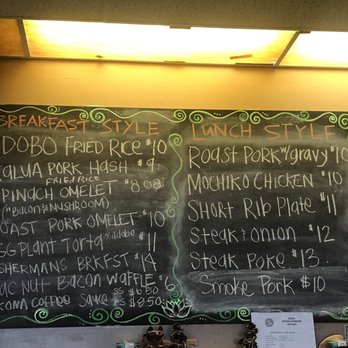 BREAKFAST STYLE
DOBO FRIED RICE $10
ALUA PORK HASH $9
FRIED RICE
PINACH OMELET $8.00
("BACON & MUSHROOM)
OAST PORK OMELET $10
GG PLANT TORTA "Adobo $11
SHERMANS BRKFST $14
AC NUT BACON WAFFLE $6
KONA COFFEE SAUCE SS $6.50
FS $9.50
LUNCH STYLE
ROAST PORK w/gravy $10
MOCHIKO CHICKEN $10
SHORT RIB PLATE $11
STEAK & ONION $12
STEAK POKE $13
SMOKE PORK $10